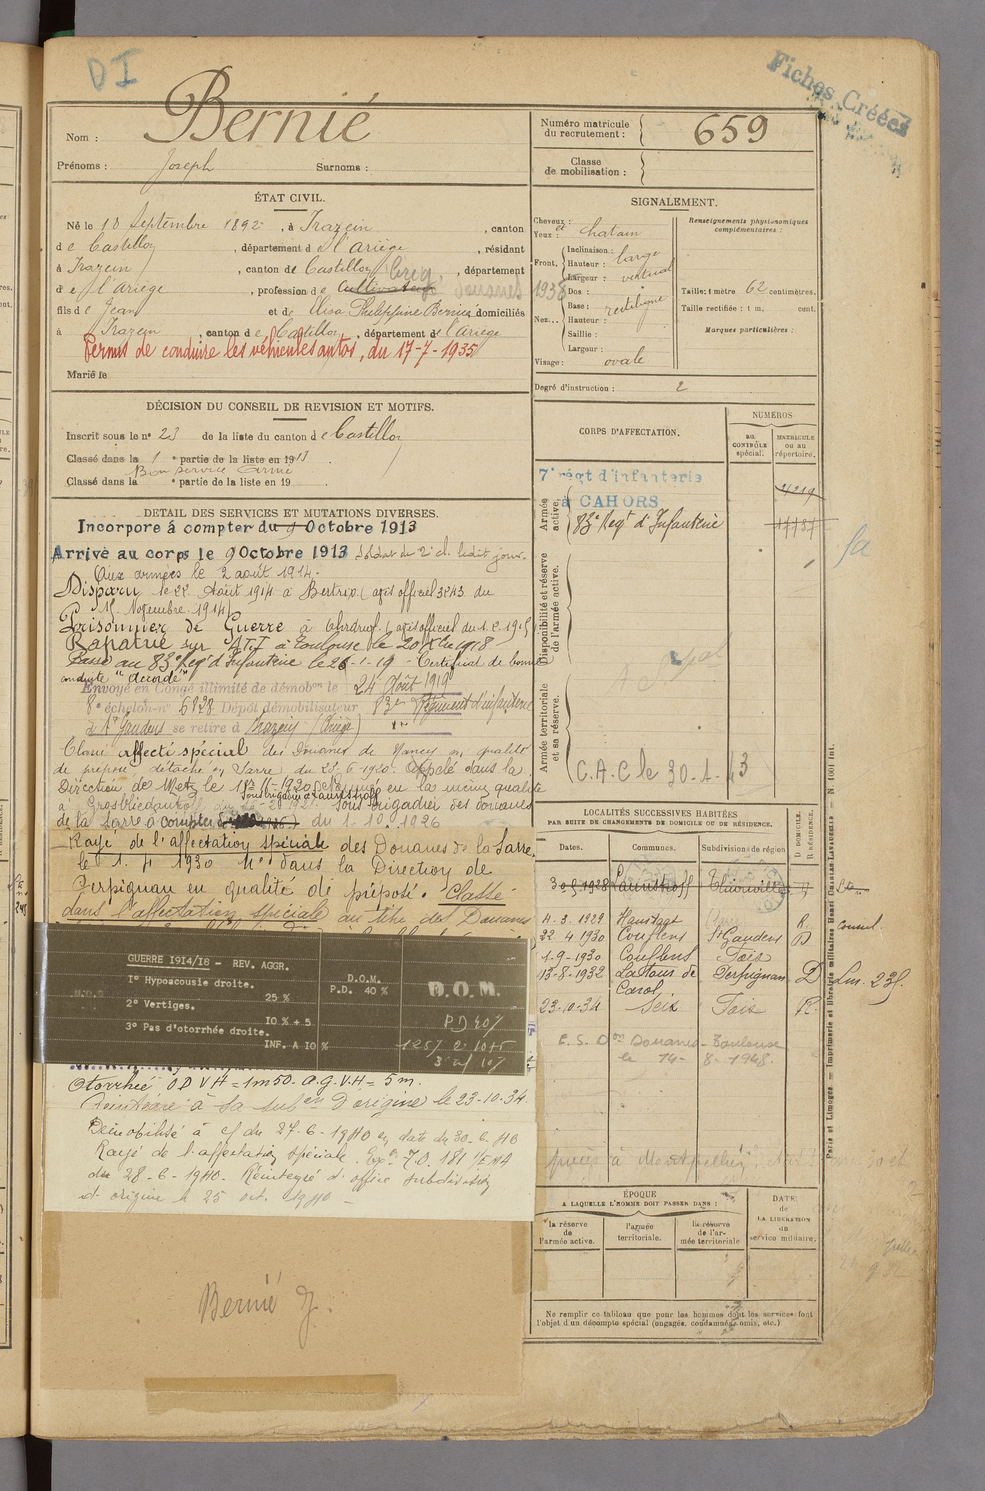 DI
Fiches Créées
Nom : Bernié
Prénoms : Joseph Surnoms :
Numéro matricule du recrutement : 659
Classe de mobilisation :
ÉTAT CIVIL.
Né le 18 Septembre 1892, à Irazein, canton
de Castillon, département de l'Ariège, résidant
à Irazein, canton de Castillon, département
de l'Ariège, profession de Cultivateur Brig. Douanes 1938
fils de Jean et de Elisa Philippine Bernié domiciliés
à Irazein, canton de Castillon, département de l'Ariège
Permis de conduire les véhicules autos, du 17-7-1935
Marié le
SIGNALEMENT.
Cheveux : et
Yeux : chatain
Front.
Inclinaison :
Hauteur : large
Largeur : vertical
Nez...
Dos :
Base : rectiligne
Hauteur :
Saillie :
Largeur :
Visage : ovale
Renseignements physionomiques complémentaires :
Taille : 1 mètre 62 centimètres.
Taille rectifiée : 1 m, cent.
Marques particulières :
Degré d'instruction : 2
DÉCISION DU CONSEIL DE REVISION ET MOTIFS.
Inscrit sous le n° 23 de la liste du canton de Castillon
Classé dans la 1e partie de la liste en 1913
Bon service armé
Classé dans la e partie de la liste en 19
DÉTAIL DES SERVICES ET MUTATIONS DIVERSES.
Incorporé à compter du 9 Octobre 1913
Arrivé au corps le 9 Octobre 1913 soldat de 2e cl. ledit jour.
Aux armées le 2 août 1914.
Disparu le 22 Août 1914 à Bertrix (avis officiel 3243 du
15 Novembre 1914)
Prisonnier de Guerre à Ohrdruf (avis officiel du 1.2.1915)
Rapatrié
Passé au 83e Reg' d'Infanterie le 26-1-19 - Certificat de bonne
conduite "accordé"
Envoyé en Congé illimité de démobon le 24 Août 1919
8e échelon n° 6828 Dépôt démobilisateur 83e Régiment d'infanterie
à St Gaudens se retire à (Ariège)
Classé affecté spécial des Douanes de Nancy en qualité
de préposé détaché en Sarre du 25.6.1920. Appelé dans la
Direction de Metz le en la même qualité
à Sous Brigadier des douanes
de la Sarre à compter du 1.10.1926
Rayé de l'affectation spéciale des Douanes de la Sarre
le 1.4 1930 dans la Direction de
Perpignan en qualité de préposé. Classé
dans l'affectation spéciale au titre des Douanes
GUERRE 1914/18 - REV. AGGR.
1° Hypoacousie droite.
25 %
2° Vertiges.
10 % + 5
3° Pas d'otorrhée droite.
INF. A 10 %
D.O.M.
P.D. 40 %
D.O.M.
PD 40%
1 25% 2 10+5
3 inf 10%
Otorrhée O D V H = 1m50 - O.G.V.H = 5 m.
Réintégré à sa subon d'origine le 23-10-34
Démobilisé à cf du 27-6-1940 en date du 30-6-40
Rayé de l'affectation spéciale.
du 28-6-1940. Réintégré d'office subdivision
d'origine le 25 oct. 1940
Bernié J.
CORPS D'AFFECTATION.
NUMÉROS
au CONTRÔLE spécial.
MATRICULE ou au répertoire.
Armée active.
7e régt d'infanterie
à CAHORS
4219
83e Regt d'Infanterie
Disponibilité et réserve de l'armée active.
Armée territoriale et sa réserve.
C.A.C le 30.1.43
LOCALITÉS SUCCESSIVES HABITÉES
PAR SUITE DE CHANGEMENTS DE DOMICILE OU DE RÉSIDENCE.
Dates. Communes. Subdivisions de région D. DOMICILE. R. RÉSIDENCE.
1928 Launstroff Thionville
4-3-1929 R. consul.
22 4 1930 Couflens St Gaudens D
1-9-1930 Couflens Foix
13-8-1932 Latour de Carol Perpignan D
23-10-34 Seix Foix R.
E.S. Don Douanes Toulouse
le 14-8-1948.
ÉPOQUE
A LAQUELLE L'HOMME DOIT PASSER DANS :
la réserve de l'armée active.
l'armée territoriale.
la réserve de l'armée territoriale
DATE de LA LIBÉRATION du service militaire.
Ne remplir ce tableau que pour les hommes dont les services font
l'objet d'un décompte spécial (engagés, condamnés, omis, etc.)
Paris et Limoges. — Imprimerie et librairie militaires Henri CHARLES-LAVAUZELLE